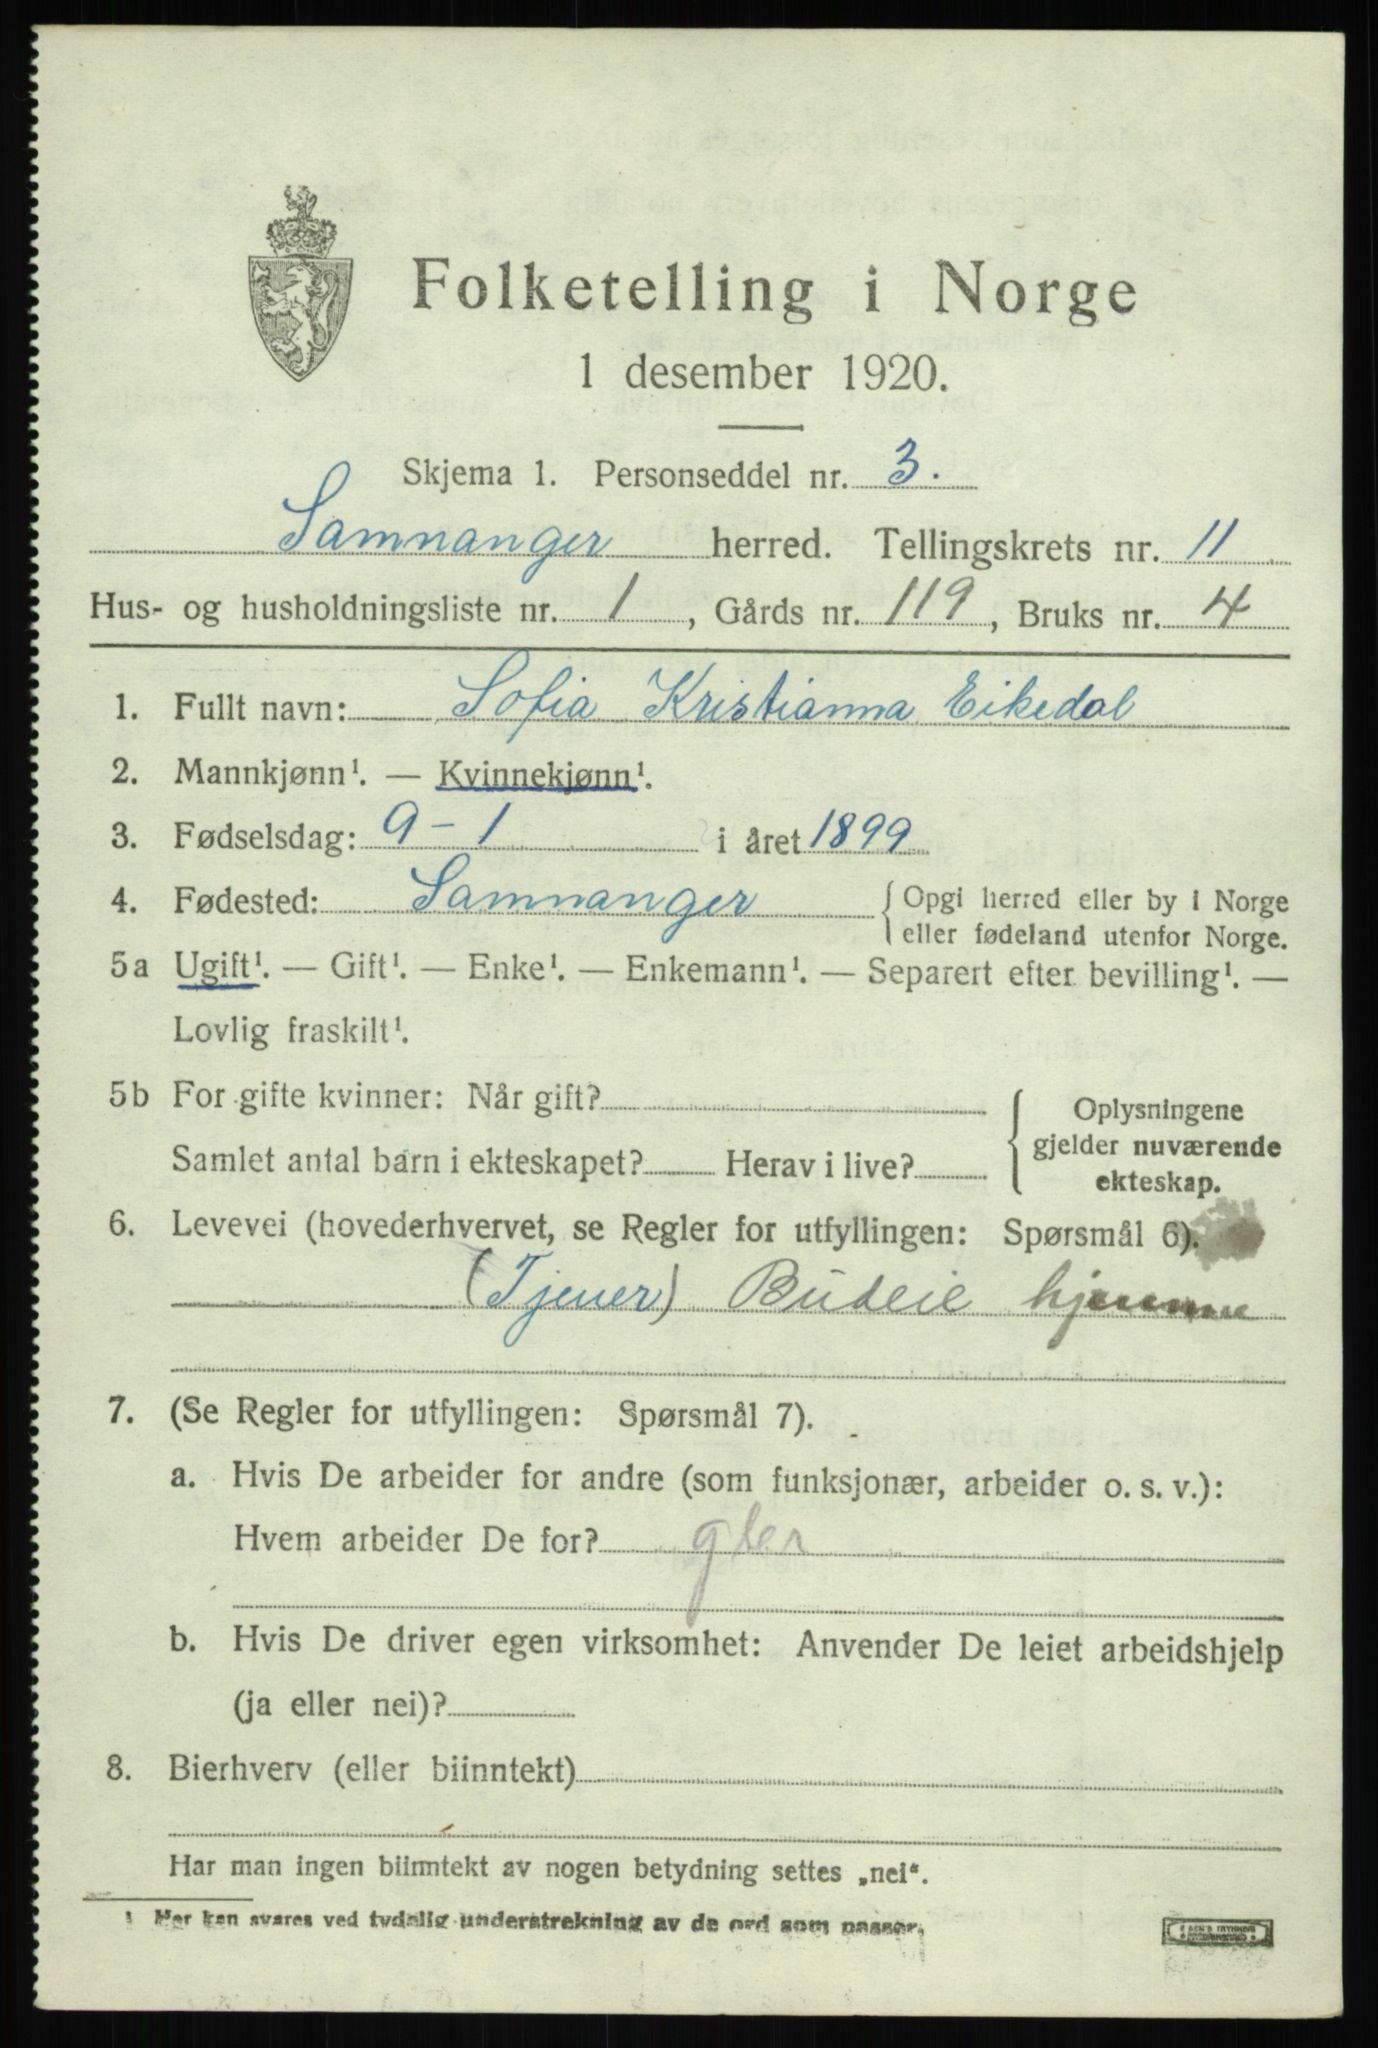 Folketelling i Norge
1 desember 1920.
Skjema 1. Personseddel nr. 3.
Samnanger herred. Tellingskrets nr. 11
Hus- og husholdningsliste nr. 1, Gårds nr. 119, Bruks nr. 4
1. Fullt navn: Sofia Kristianna Eikedal
2. Mannkjønn¹. — Kvinnekjønn¹.
3. Fødselsdag: 9-1 i året 1899
4. Fødested: Samnanger { Opgi herred eller by i Norge
eller fødeland utenfor Norge.
5a Ugift¹. — Gift¹. — Enke¹. — Enkemann¹. — Separert efter bevilling¹. —
Lovlig fraskilt¹.
5b For gifte kvinner: Når gift?
Samlet antal barn i ekteskapet? Herav i live?
Oplysningene
gjelder nuværende
ekteskap.
6. Levevei (hovederhvervet, se Regler for utfyllingen: Spørsmål 6).
(Tjener) Budeie hjemme
7. (Se Regler for utfyllingen: Spørsmål 7).
a. Hvis De arbeider for andre (som funksjonær, arbeider o. s. v.):
Hvem arbeider De for?
b. Hvis De driver egen virksomhet: Anvender De leiet arbeidshjelp
(ja eller nei)?
8. Bierhverv (eller biinntekt)
Har man ingen biinntekt av nogen betydning settes „nei“.
¹ Her kan svares ved tydelig understrekning av de ord som passer.